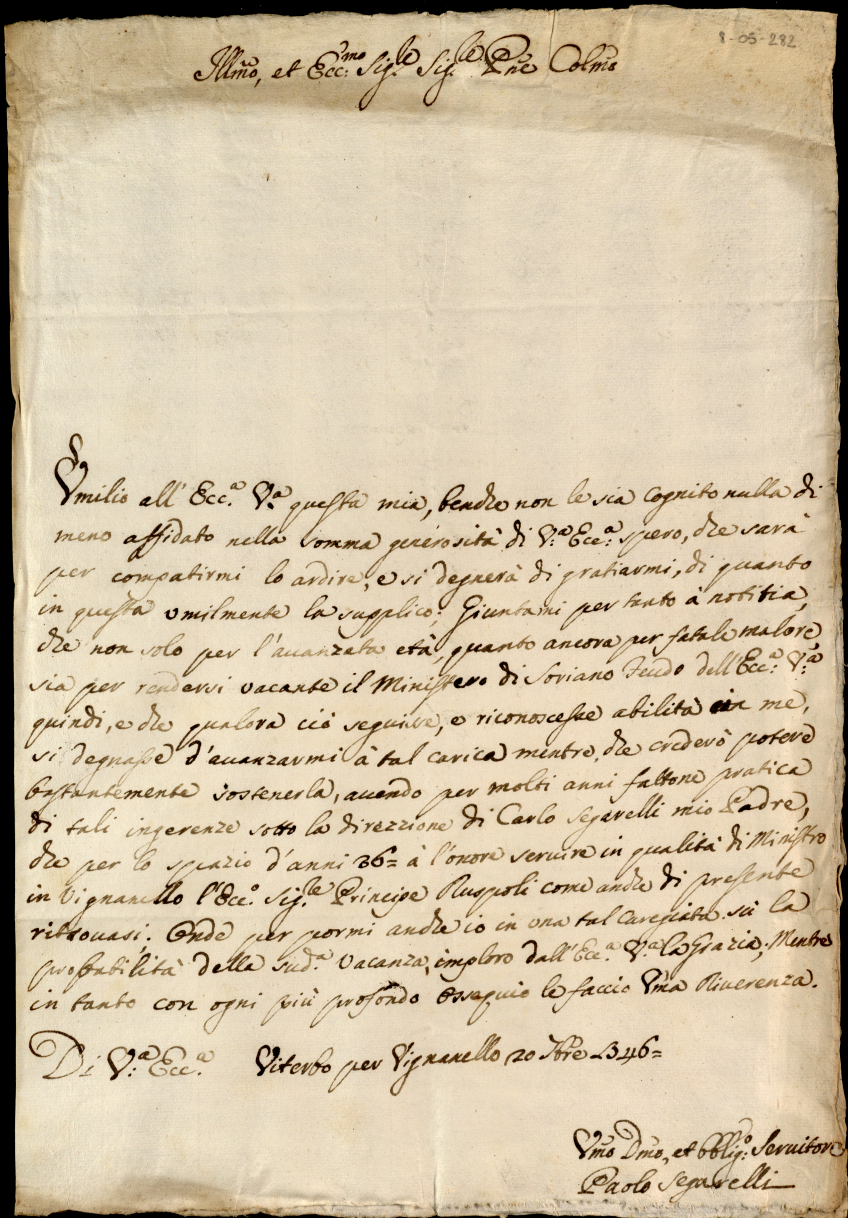 8-05-282
Illmo, et Ecc:mo Sig:le Sig:le Pne Colmo
Vmilio all'Ecc:a V:a questa mia, benche non le sia Cognito nulla di
meno affidato nella somma generosità di V:a Ecc:a spero, che sarà
per compatirmi lo ardire, e si degnerà di gratiarmi, di quanto
in questa vmilmente la supplico; Giuntami per tanto à notitia,
che non solo per l'auanzata età, quanto ancora per fatale malore,
sia per rendersi vacante il Ministero di Soriano Feudo dell'Ecc:a V:a
quindi, e che qualora ciò seguisse, e riconoscesse abilità in me,
si degnasse d'auanzarmi à tal carica mentre, che crederò potere
bastantemente sostenerla, auendo per molti anni fattone pratica
di tali ingerenze sotto la direzzione di Carlo Segarelli mio Padre,
che per lo spazio d'anni 26= à l'onore seruire in qualità di Ministro
in Vignanello l'Ecc:o Sig:le Principe Ruspoli come anche di presente
ritrouasi; Onde per pormi anche io in vna tal Caregiata sù la
probabilità della sud:a Vacanza, imploro dall'Ecc:a V:a la Grazia; Mentre
in tanto con ogni più profondo Ossequio le faccio Vma Riuerenza.
Di V:a Ecc:a Viterbo per Vignanello 20 Xbre 1746=
Vmo Dmo, et Obblig:o Seruitore
Paolo Segarelli